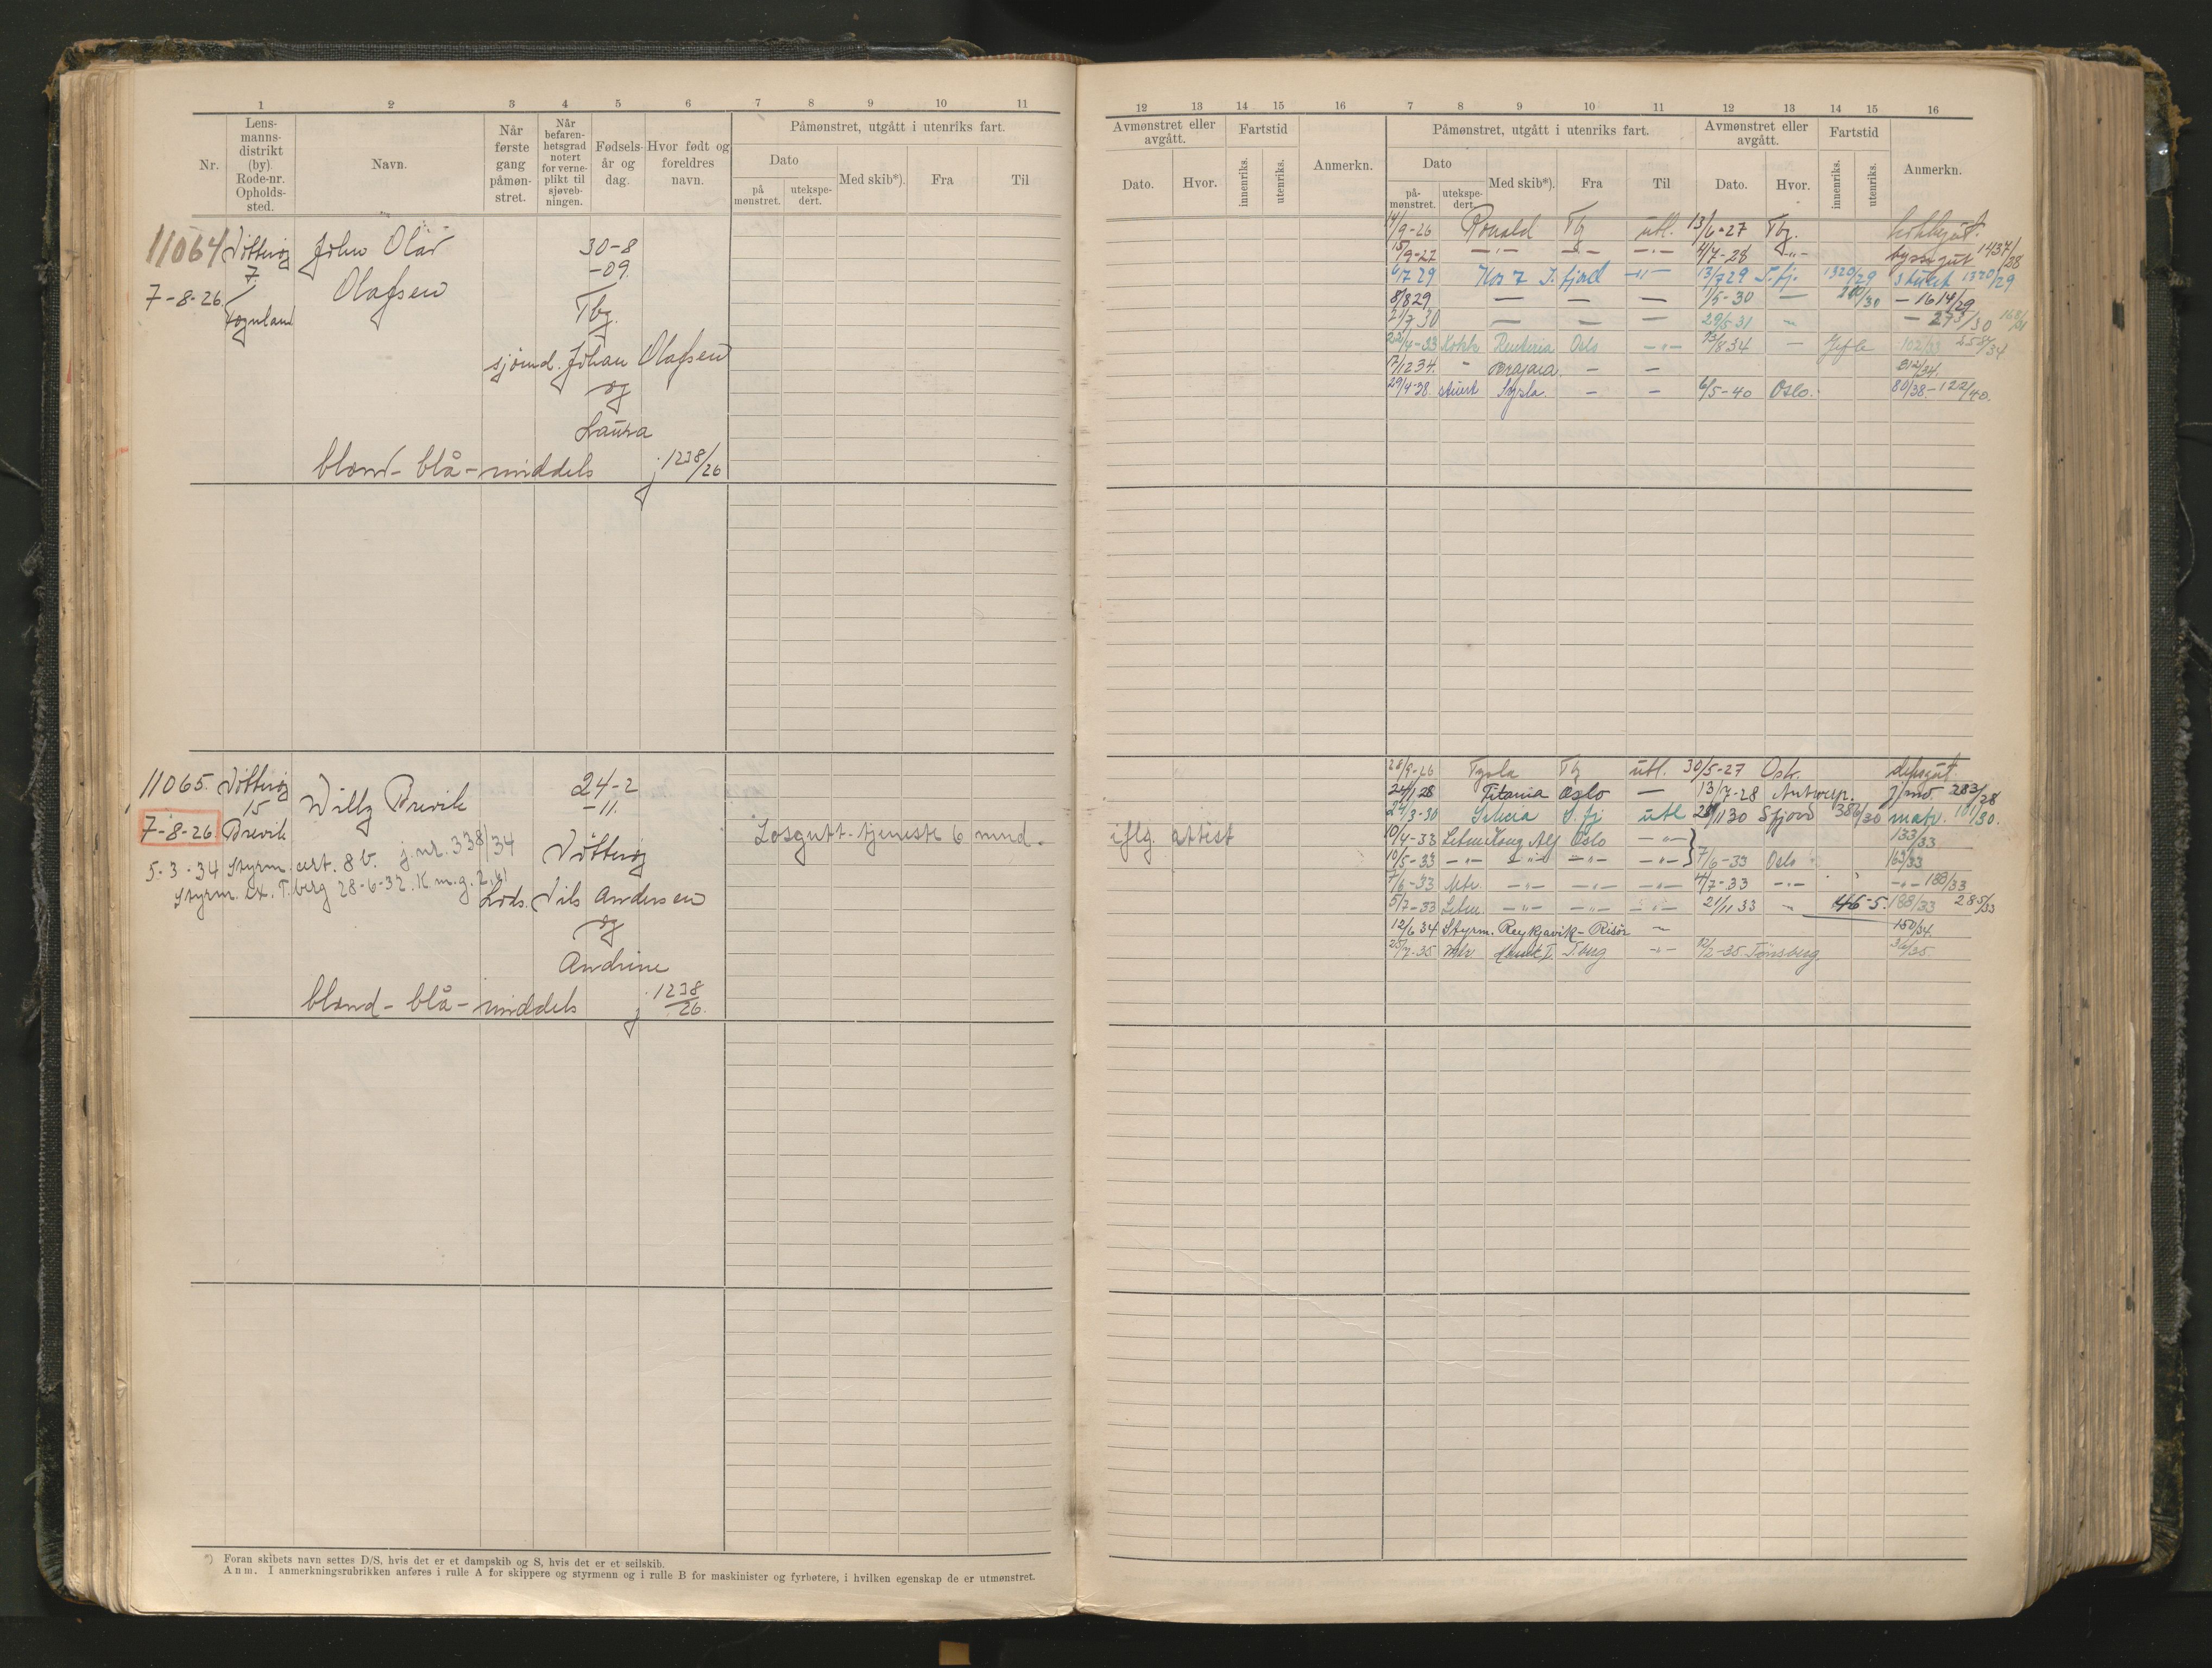 1 2 3 4 5 6 7 8 9 10 11
Nr.
Lens-
manns-
distrikt
(by).
Rode-nr.
Opholds-
sted.
Navn.
Når
første
gang
påmøn-
stret.
Når
befaren-
hetsgrad
notert
for verne-
plikt til
sjøveb-
ningen.
Fødsels-
år og
dag.
Hvor født og
foreldres
navn.
Påmønstret, utgått i utenriks fart.
Dato
på
mønstret.
utekspe-
dert.
Med skib*).
Fra
Til
11064 Nøtterøy John Olav 30-8
7 -09.
7-8-26. Olafsen Tbg.
sjømd. Johan Olafsen
og
Laura
blond - blå - middels j 1238/26
11065. Nøtterøy Willy Brevik 24-2
15 -11.
7-8-26. Brevik
Losgutt-tjeneste 6 mnd.
5-3-34 Styrm. cert. 8 b. j. nr. 338/34 Nøtterøy
Styrm. ex. T.berg 28-6-32. K m. g. 2,61
Lods. Nils Andersen
og
Andrine
blond - blå - middels j 1238/26.
*) Foran skibets navn settes D/S, hvis det er et dampskib og S, hvis det er et seilskib.
Anm. I anmerkningsrubrikken anføres i rulle A for skippere og styrmenn og i rulle B for maskinister og fyrbøtere, i hvilken egenskap de er utmønstret.
12 13 14 15 16 7 8 9 10 11 12 13 14 15 16
Avmønstret eller
avgått.
Dato.
Hvor.
Fartstid
innenriks.
utenriks.
Anmerkn.
Påmønstret, utgått i utenriks fart.
Dato
på-
mønstret.
utekspe-
dert.
Med skib*).
Fra
Til
Avmønstret eller
avgått.
Dato.
Hvor.
Fartstid
innenriks.
utenriks.
Anmerkn.
14/9-26 Ronald Tbg utl. 13/6-27 Tbg.
15/9-27 -"- -"- -"- 4/7-28 -"- byssegut 1437/28
6/7 29 Kos 7 S. fjord -"- 13/7 29 S. fj. 1320/29 stuert 1320/29
8/8 29 — — — 1/5-30 — - 1614/29
21/7 30 — — — 29/5 31 - 273/30
22/4-33 Kokk Oslo -"- 13/8 34 — 102/33 258/34
17/12 34. - - - 212/34.
29/4-38. stuert Sysla. - - 6/5-40 Oslo. 80/38 - 122/40.
28/9-26 Tysla Tbg utl. 30/5-27 Osk. deksgut.
24/1 28 Titania Oslo — 13/7-28 Antwerp. j/md. 283/28
24/3-30 S. fj utl 28/11 30 Sfjord 386/30 matr. 101/30.
iflg. attest
10/4-33 Letm. Kong Alf Oslo -"- 133/33
10/5-33 -"- -"- -"- -"- 7/6-33 Oslo 163/33
7/6-33 Mtr. -"- -"- -"- 4/7-33 -"- -"- 188/33
5/7-33 Letm. -"- -"- -"- 21/11 33 - 46-5. 188/33 285/33
12/6 34 Styrm. Reykjavik - Risør - 150/34.
25/7-35 Mtr T.berg -"- Tønsberg 36/35.